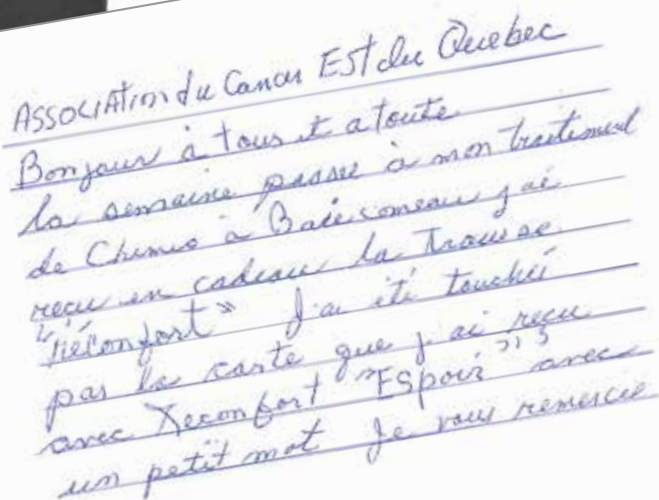 Association du Cancer Est du Quebec
Bonjour à tous et a toute
la semaine passé à mon traitement
de Chimio à Baie comeau j ai
reçu en cadeau la Trousse
"Réconfort" J'ai été touché
par la carte que j ai recu
avec Reconfort "Espoir" avec
un petit mot Je vous remercie